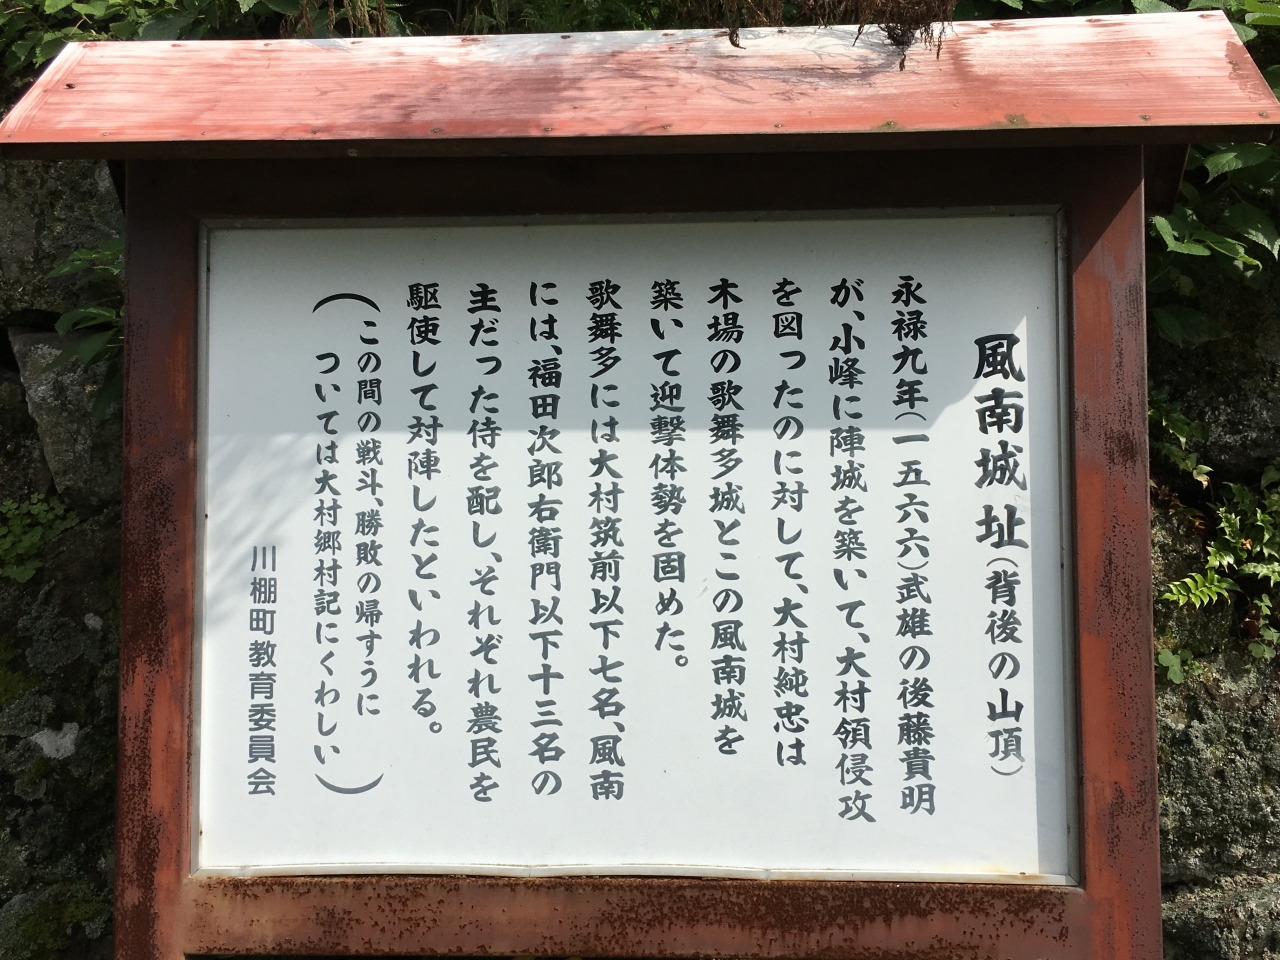 風南城址(背後の山頂)
永禄九年(一五六六)武雄の後藤貴明
が、小峰に陣城を築いて、大村領侵攻
を図ったのに対して、大村純忠は
木場の歌舞多城とこの風南城を
築いて迎撃体勢を固めた。
歌舞多には大村筑前以下七名、風南
には、福田次郎右衛門以下十三名の
主だった侍を配し、それぞれ農民を
駆使して対陣したといわれる。
(この間の戦斗、勝敗の帰すうに
ついては大村郷村記にくわしい)
川棚町教育委員会